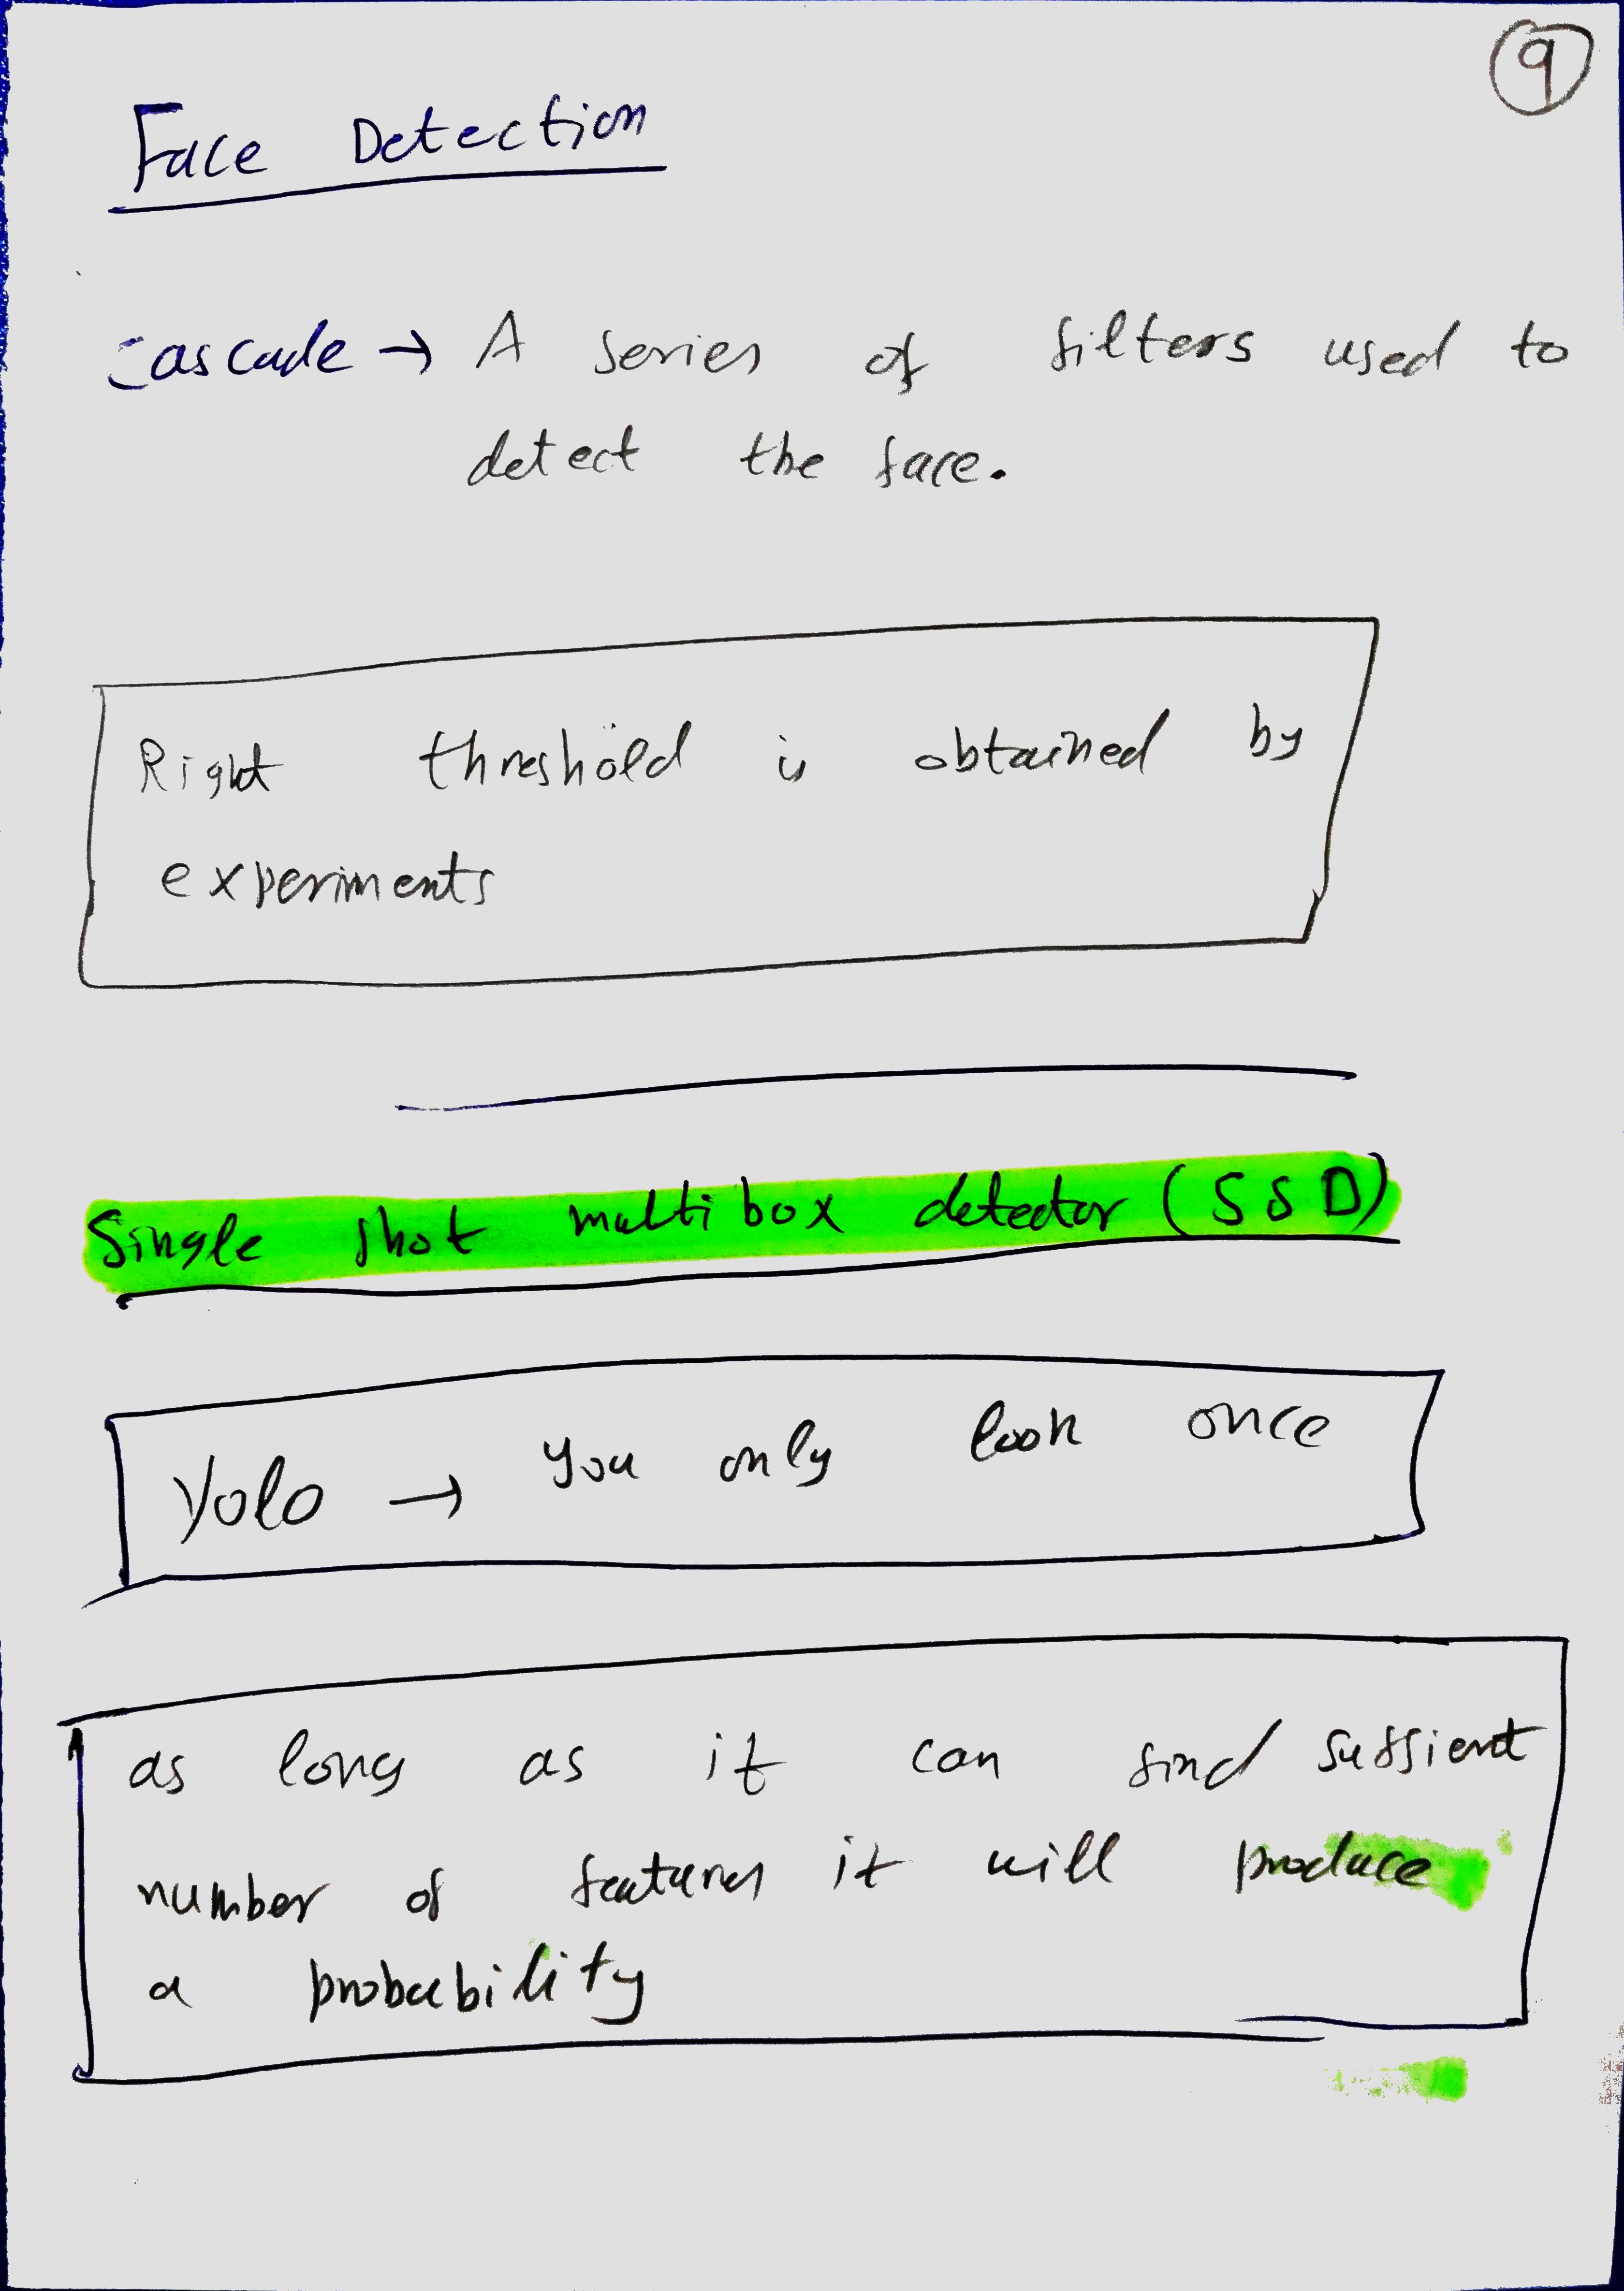 9
Face Detection
cascade → A series of filters used to
detect the face.
Right threshold is obtained by
experiments
Single shot multibox detector (SSD)
Yolo → you only look once
as long as it can find suffient
number of features it will produce
a probability